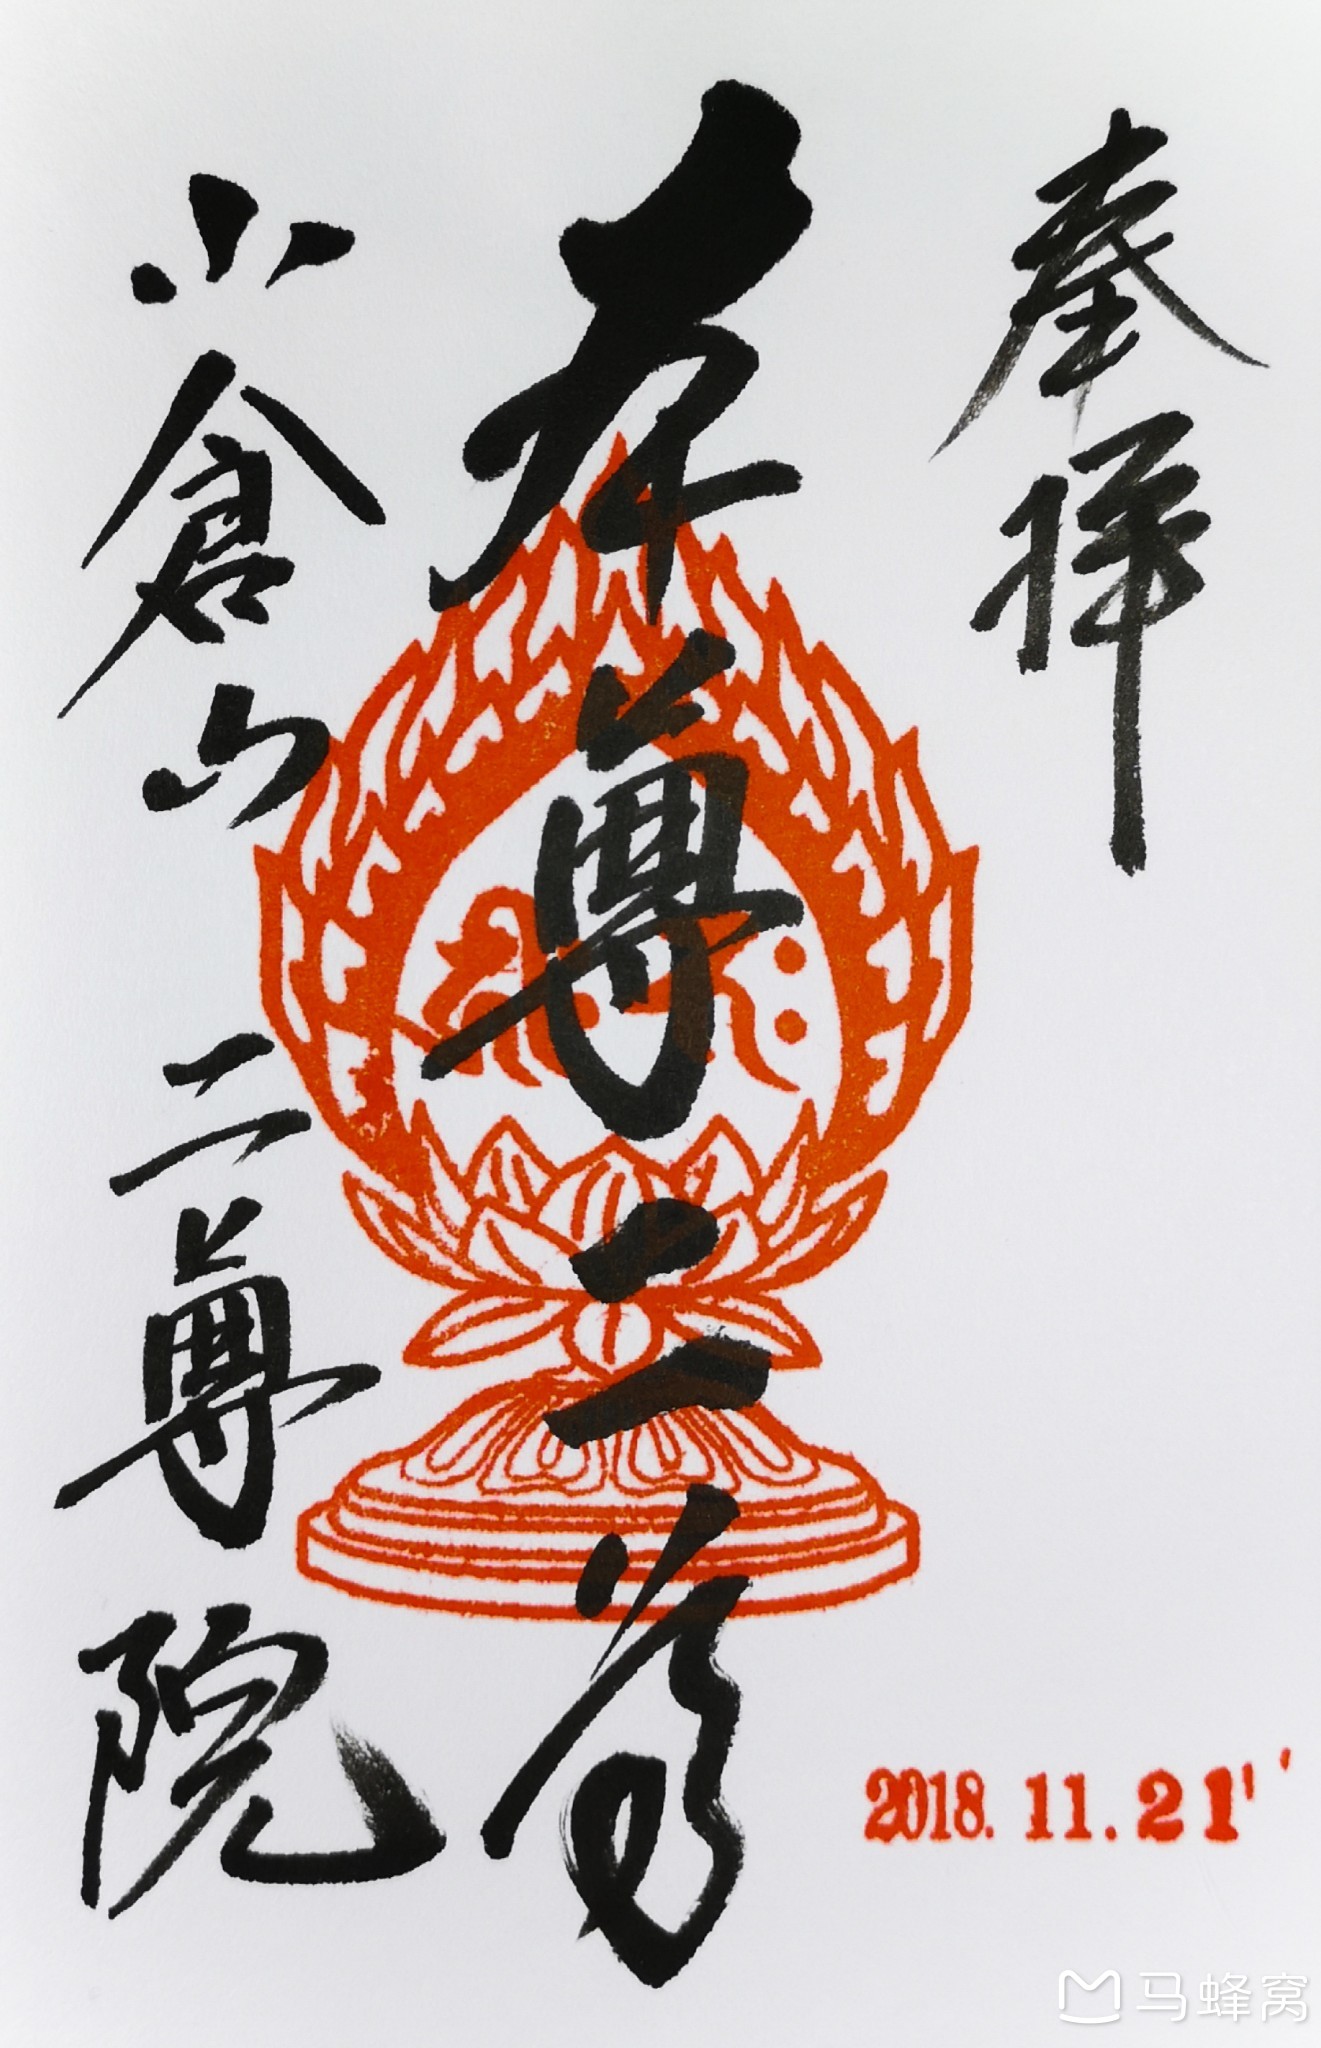 奉拝
本尊二尊
小倉山
二尊院
2018.11.21
马蜂窝